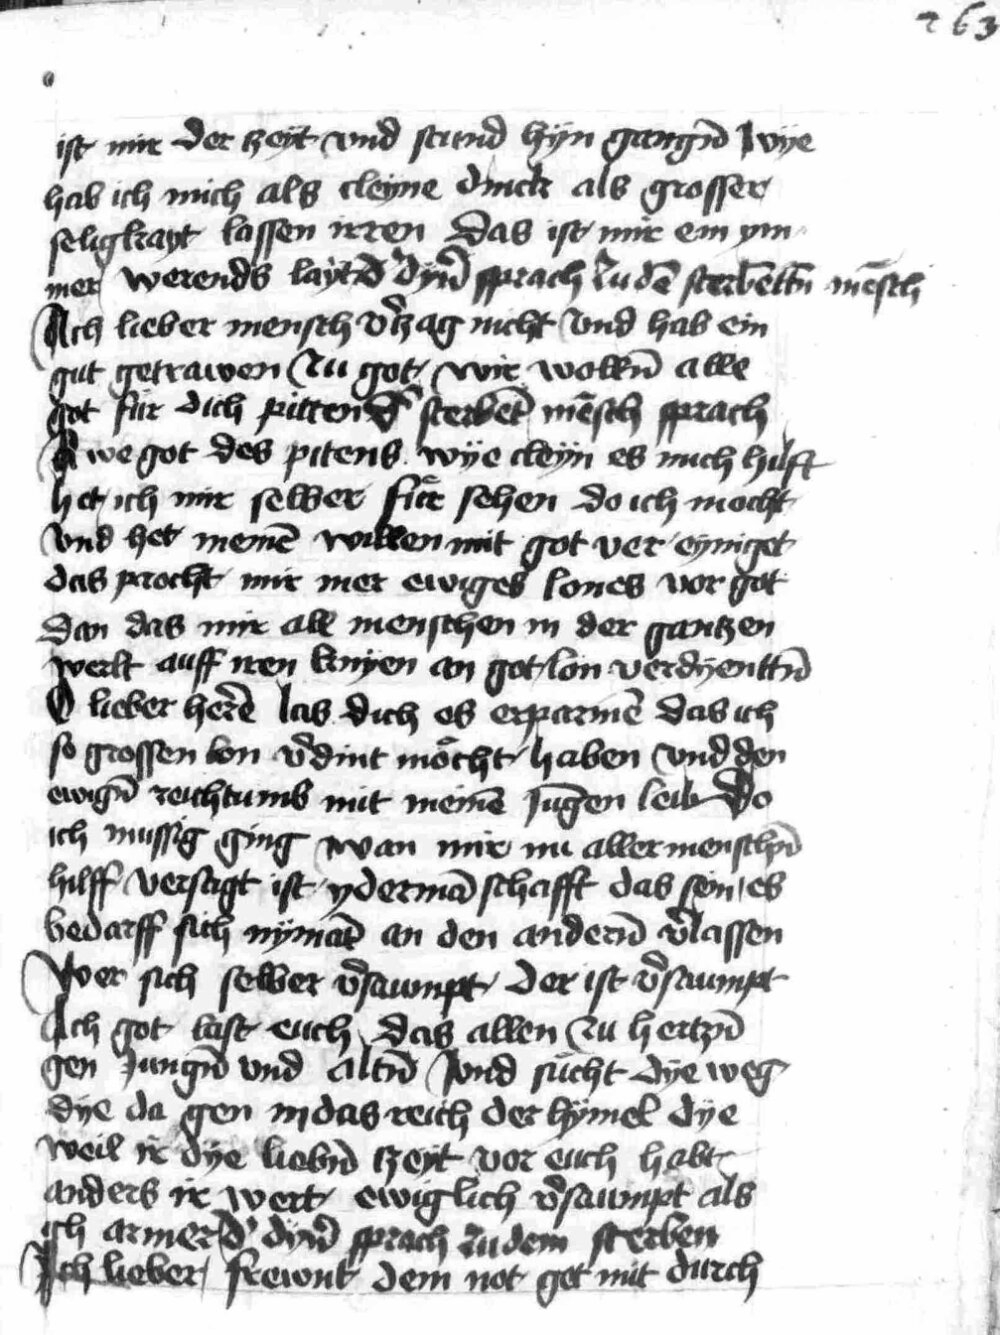 263
ist mir der tzeÿt vnd stund hÿn gangn̄ Wÿe
hab ich mich als cleyne dinck als grosser
seligkayt lassen irren Das ist mir ein ym
mer werends laÿtd̄ dÿn̄ sprach zu dē sterbēttn̄ mēsch
Ach lieber mensch v̄tzag nicht Vnd hab ein
gut getrawen zu got wir wolln̄ alle
got für dich pitten d̄ sterbēt mēsch sprach
Awe got des pitens wÿe cleÿn es mich hilft
het ich mir selber für sehen do ich mocht
Vnd het meinē willen mit got ver eyniget
das precht mir mer ewiges lones vor got
Dan das mir all menschen in der gantzen
werlt auff iren knyen an got lon verdyenttn̄
O lieber herē las dich es erparmē das ich
so grossen lon v̄dint möcht haben Vnd den
ewign̄ reichtumb mit meinē Jungen leib Do
ich mussig ging wan mir nu aller menschn̄
hilff versagt ist ydermā schafft das sein es
bedarff sich nÿmāt an den andern̄ v̄lassen
Wer sich selber v̄sawmpt Der ist v̄saumpt
Ach got last euch das allen zu hertzn̄
gen Jungn̄ vnd altn̄ Vnd sucht dÿe weg
dÿe da gen in das reich der hÿmel dÿe
weil ir dÿe liebn̄ tzeÿt vor euch habt
anders ir wert ewiglich v̄sawmpt als
ich armer d̄ dÿn̄ sprach zu dem sterben
Ach lieber frewnt dem not get mit durch